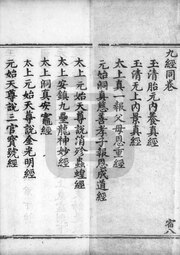 九經同卷
玉清胎元內養真經
玉清元上內景真經
太上真一報父母恩重經
元始洞真慈善孝子報恩成道經
太上元始天尊說消殄蟲蝗經
太上安鎮九壘龍神妙經
太上洞真安竈經
太上元始天尊說金光明經
元始天尊說三官寶號經
宿八